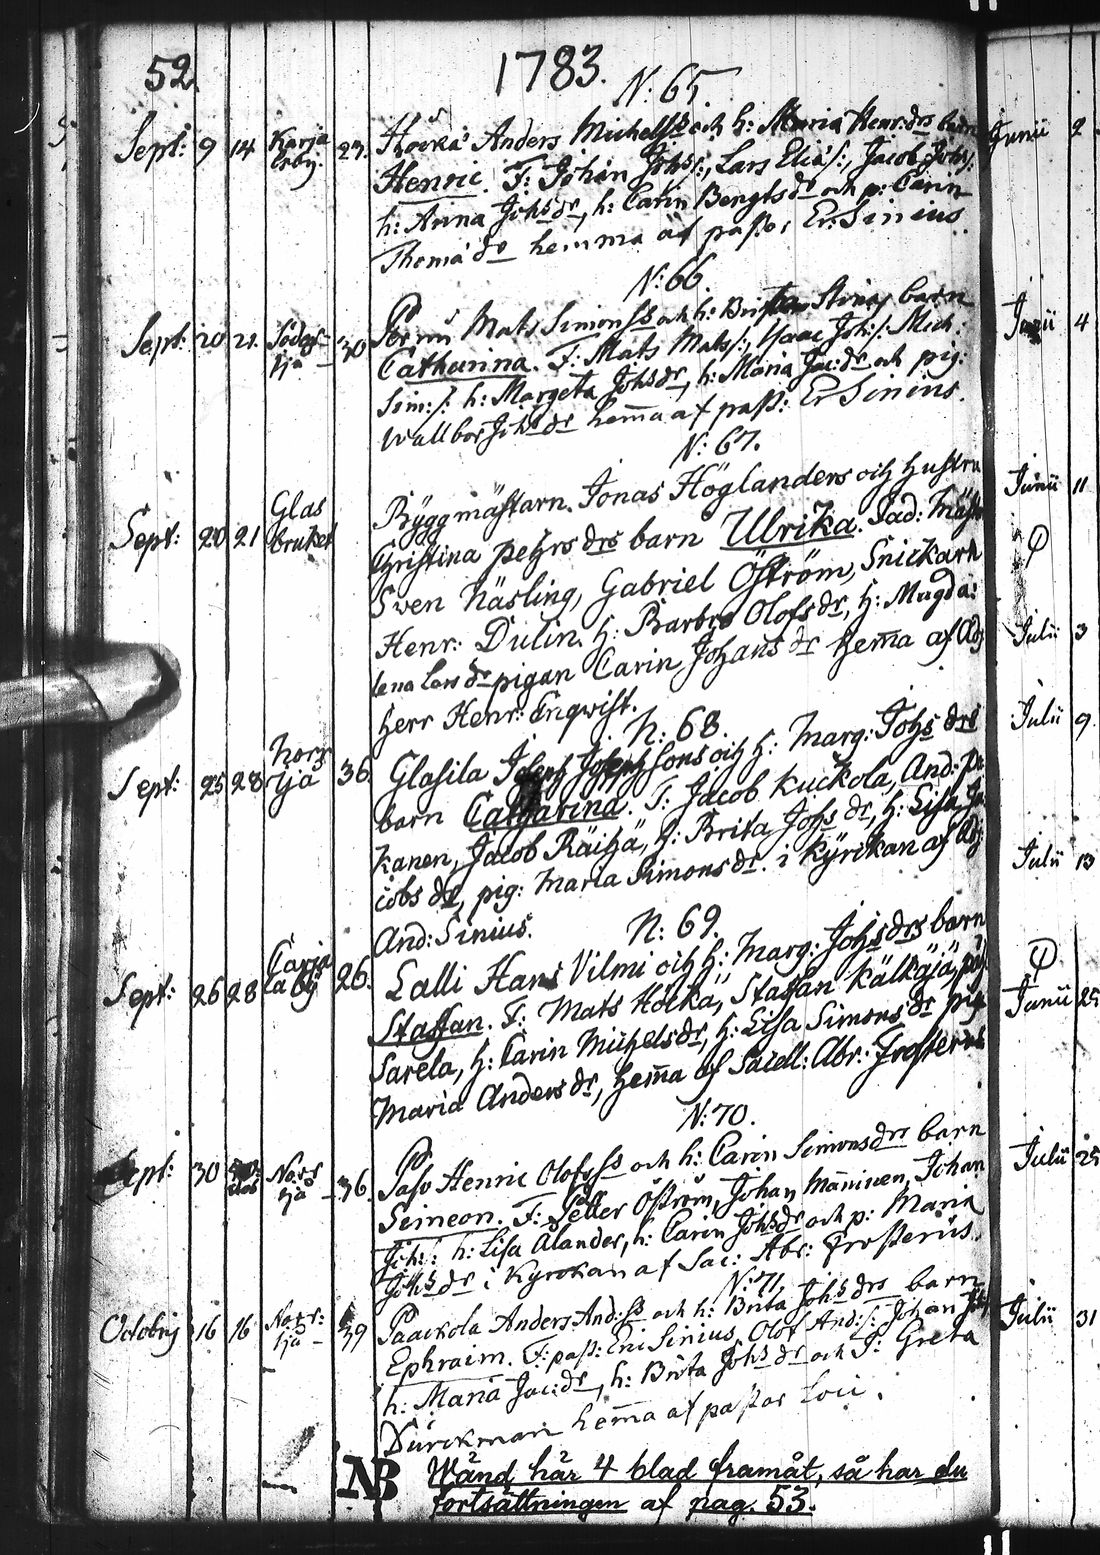 52.
1783.
N: 65.
Sept: 9 14 Karja laby. 27. Höckä Anders Michelss och h: Maria Henr:drs barn
Henric. F: Johan Johs/:, Lars Elia/:, Jacob Johs/:
h: Anna Johsdr, h: Carin Bengtsdr och p: Carin
Thoma dr hemma af past: Er: Sinius.
N: 66.
Sept: 20 21. Söder tja 30 Mats Simonss och h: Brita Stinas barn
Catharina. F: Mats Mats/:, Isaac Joh:/: Mich:
Sim:/: h: Margeta Johsdr, h: Maria Jac:dr och pig:
Wallbor Johsdr hema af past: Er Sinius.
N: 67.
Sept: 20 21 Glas bruket Byggmästarn Jonas Höglanders och hustru
Christina Pehrs drs barn Ulrika. Fad: Mäst
Sven Näsling, Gabriel Öström, Snickarn
Henr: Dulin. h: Barbro Olofs dr, h: Magda:
lena Lars dr pigan Carin Johans dr hema af Adj
herr Henr: Enqwist.
N: 68.
Sept: 25 28 Norr tja 36. Glasila Joseph Josephsons och h: Marg: Johs drs
barn Catharina. F: Jacob Kuckola, And: Pa
kanen, Jacob Räihä, h: Brita Johs dr, h: Lisa Ja
cobs dr, pig: Maria Simons dr. i Kyrkan af Adj:
And: Sinius.
N: 69.
Sept: 26 28 Carja laby 26. Lalli Hans Vilmi och h: Marg: Johs drs barn
Staffan. F: Mats Höckä, Staffan Kälkäjä, pig
Sarela, h: Carin Michels dr, h: Lisa Simons dr pig
Maria Anders dr, hema af Sacell: Abr: Frosterus
N: 70.
Sept: 30 Norr tja 36. Paso Henric Olofsss och h: Carin Simonsdrs barn
Simeon. F: Petter Öström, Johan Manninen, Johan
Joh:/: h: Lisa Alander, h: Carin Johsdr och p: Maria
Johs dr i Kyrckan af Sac: Abr: Frosterus.
N: 71.
Octobrj 16 16 Norr: tja 39 Paackola Anders And:ss och h: Brita Johs drs barn
Ephraim. F: past: Eric Sinius, Olof And:/: Johan Joh
h: Maria Jac:dr, h: Brita Johs dr och J: Greta
Dürckman hema af pastor loci.
NB Wänd här 4 blad framåt, så har du
fortsättningen af pag. 53.
Junii 2
Junii 4
Junii 11
Julii 3
Julii 9
Julii 13
Junii 25
Julii 25
Julii 31